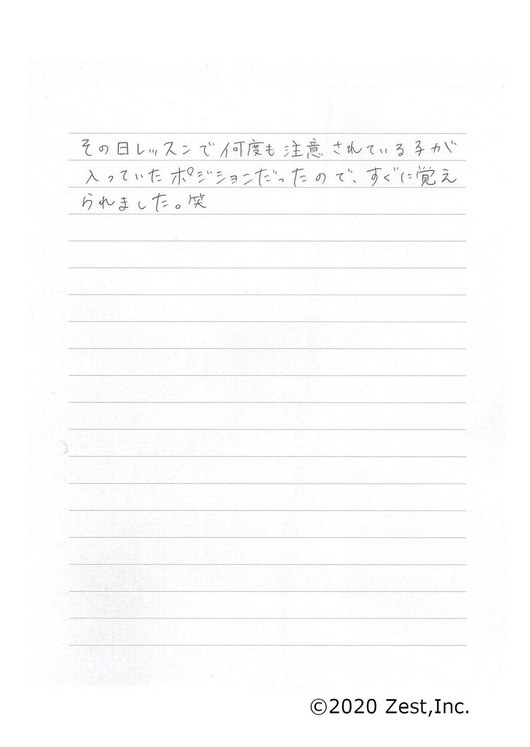 その日レッスンで何度も注意されている子が
入っていたポジションだったので、すぐに覚え
られました。笑
©2020 Zest,Inc.